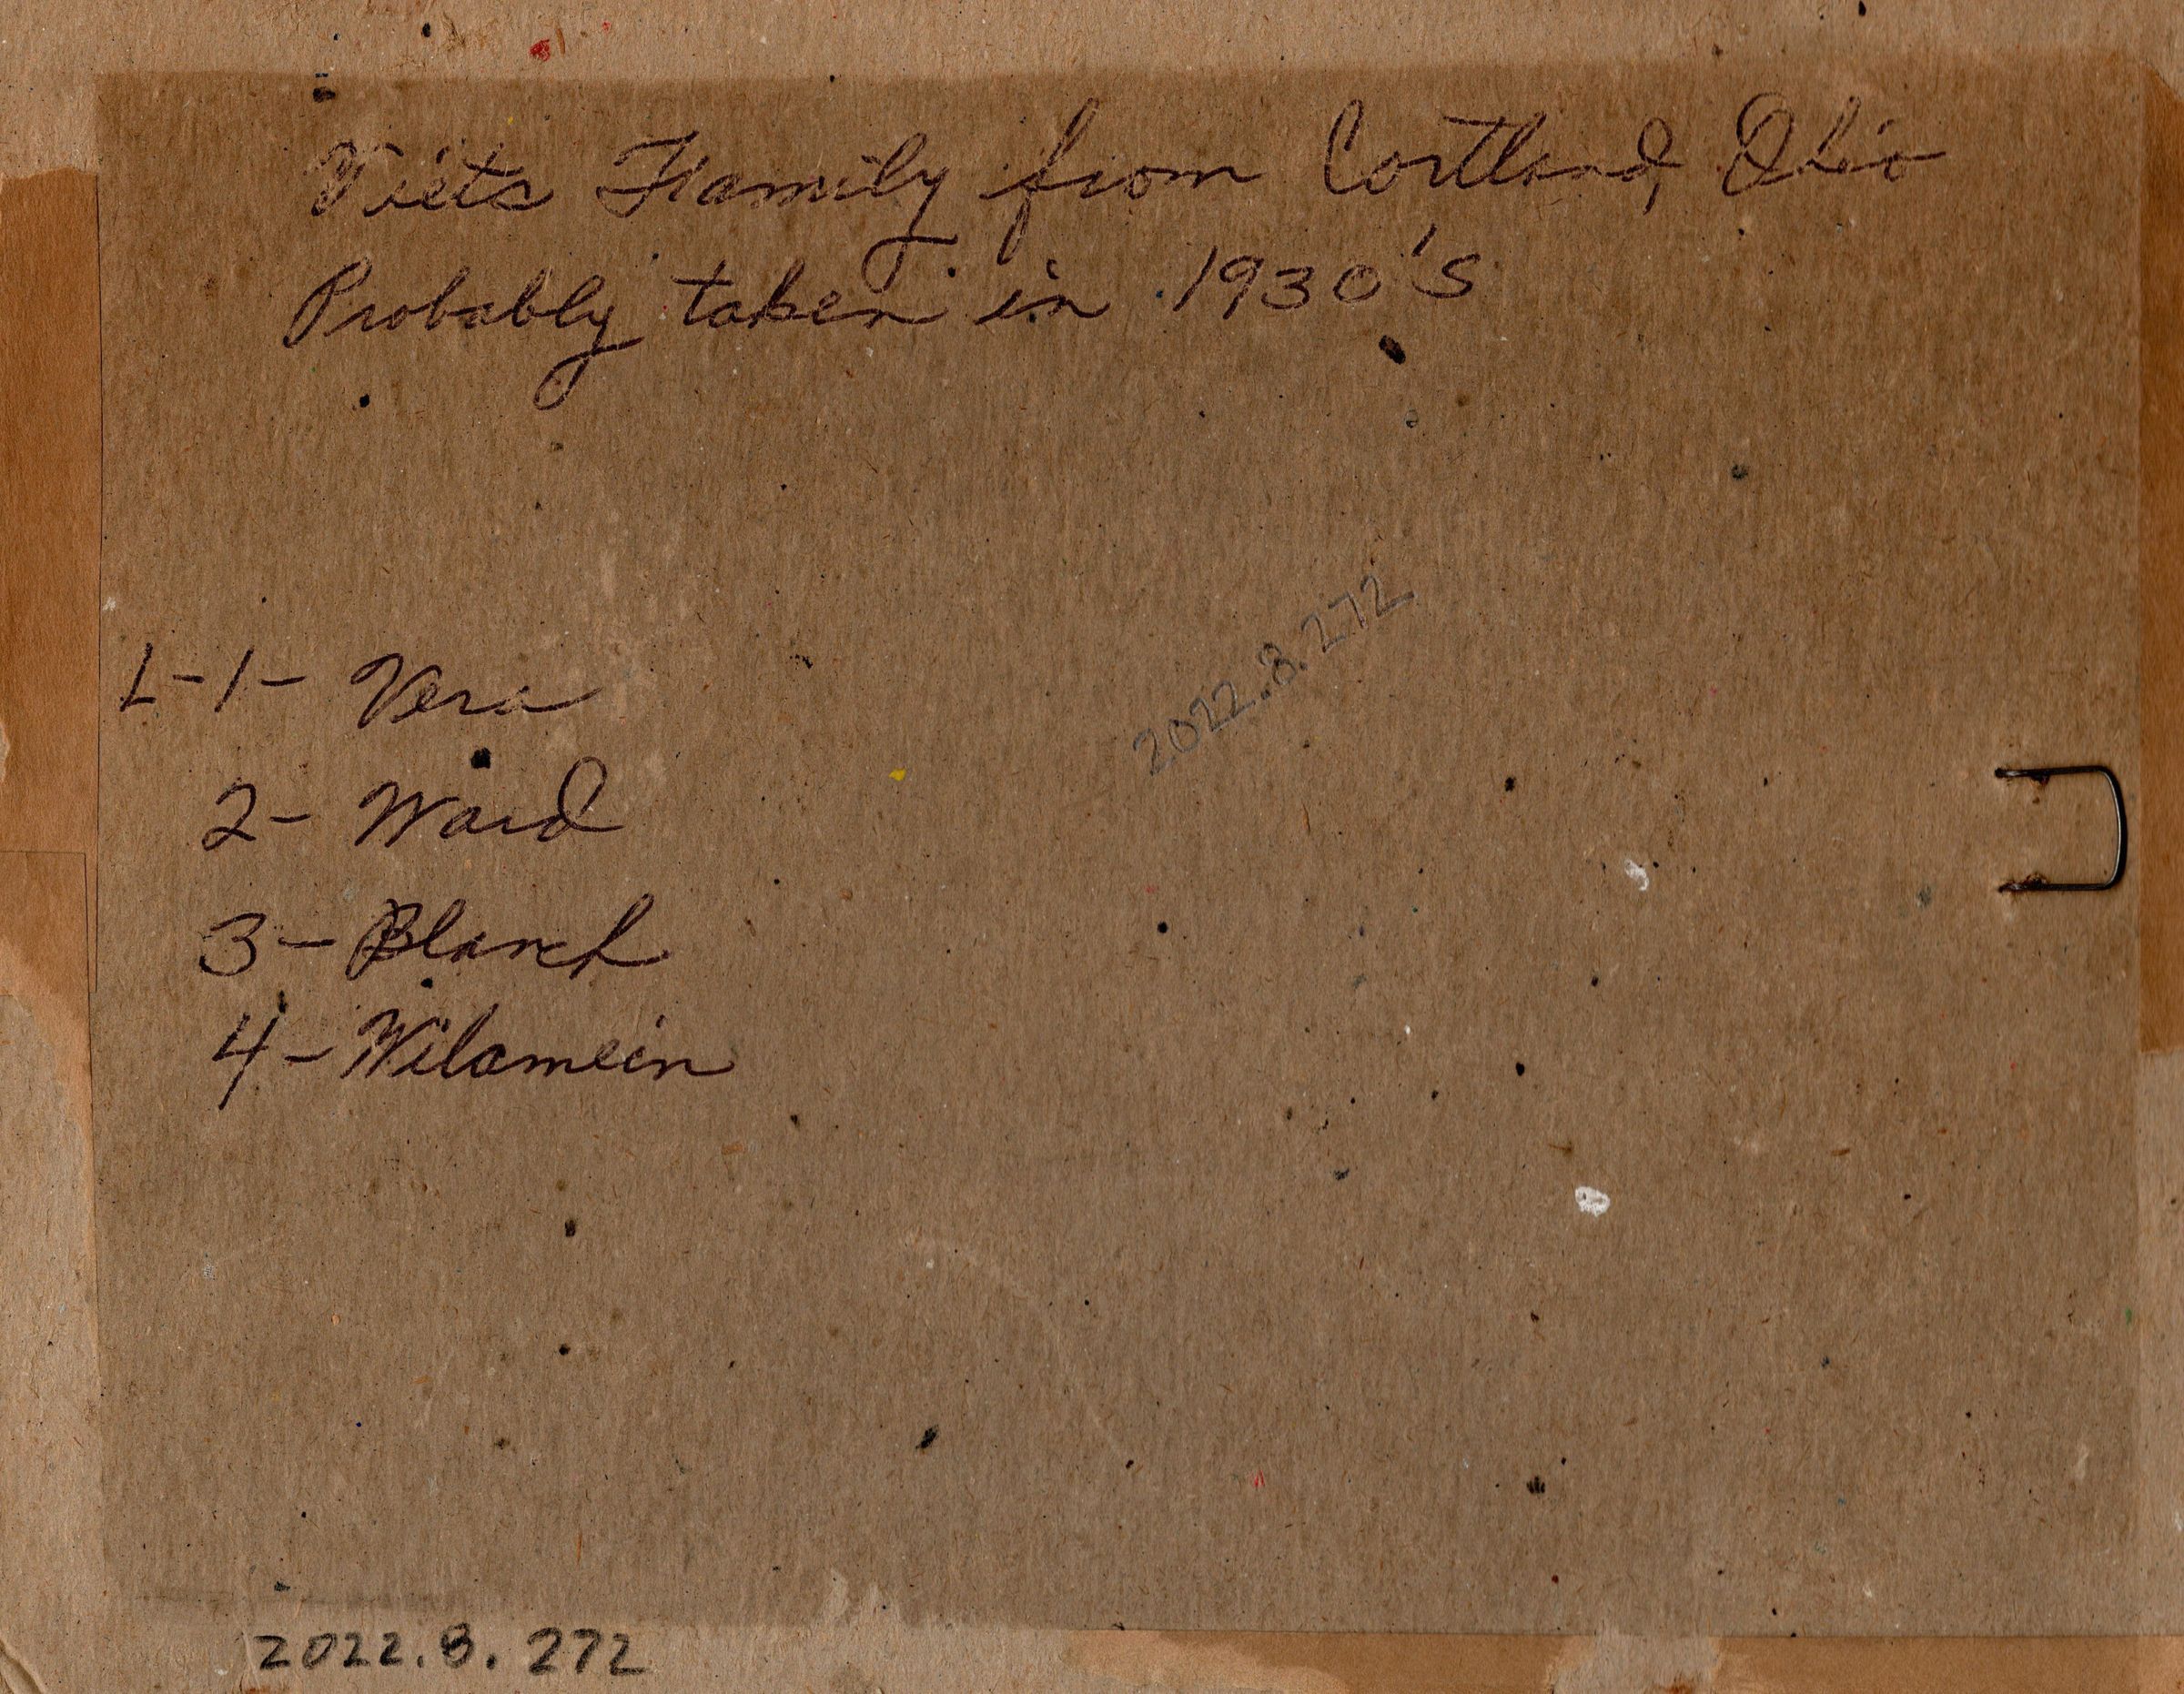 Viets Family from Cortland, Ohio
Probably taken in 1930's
2022.8.272
L-1- Vera
2- Ward
3- Blanch
4- Wilamein
2022.8.272